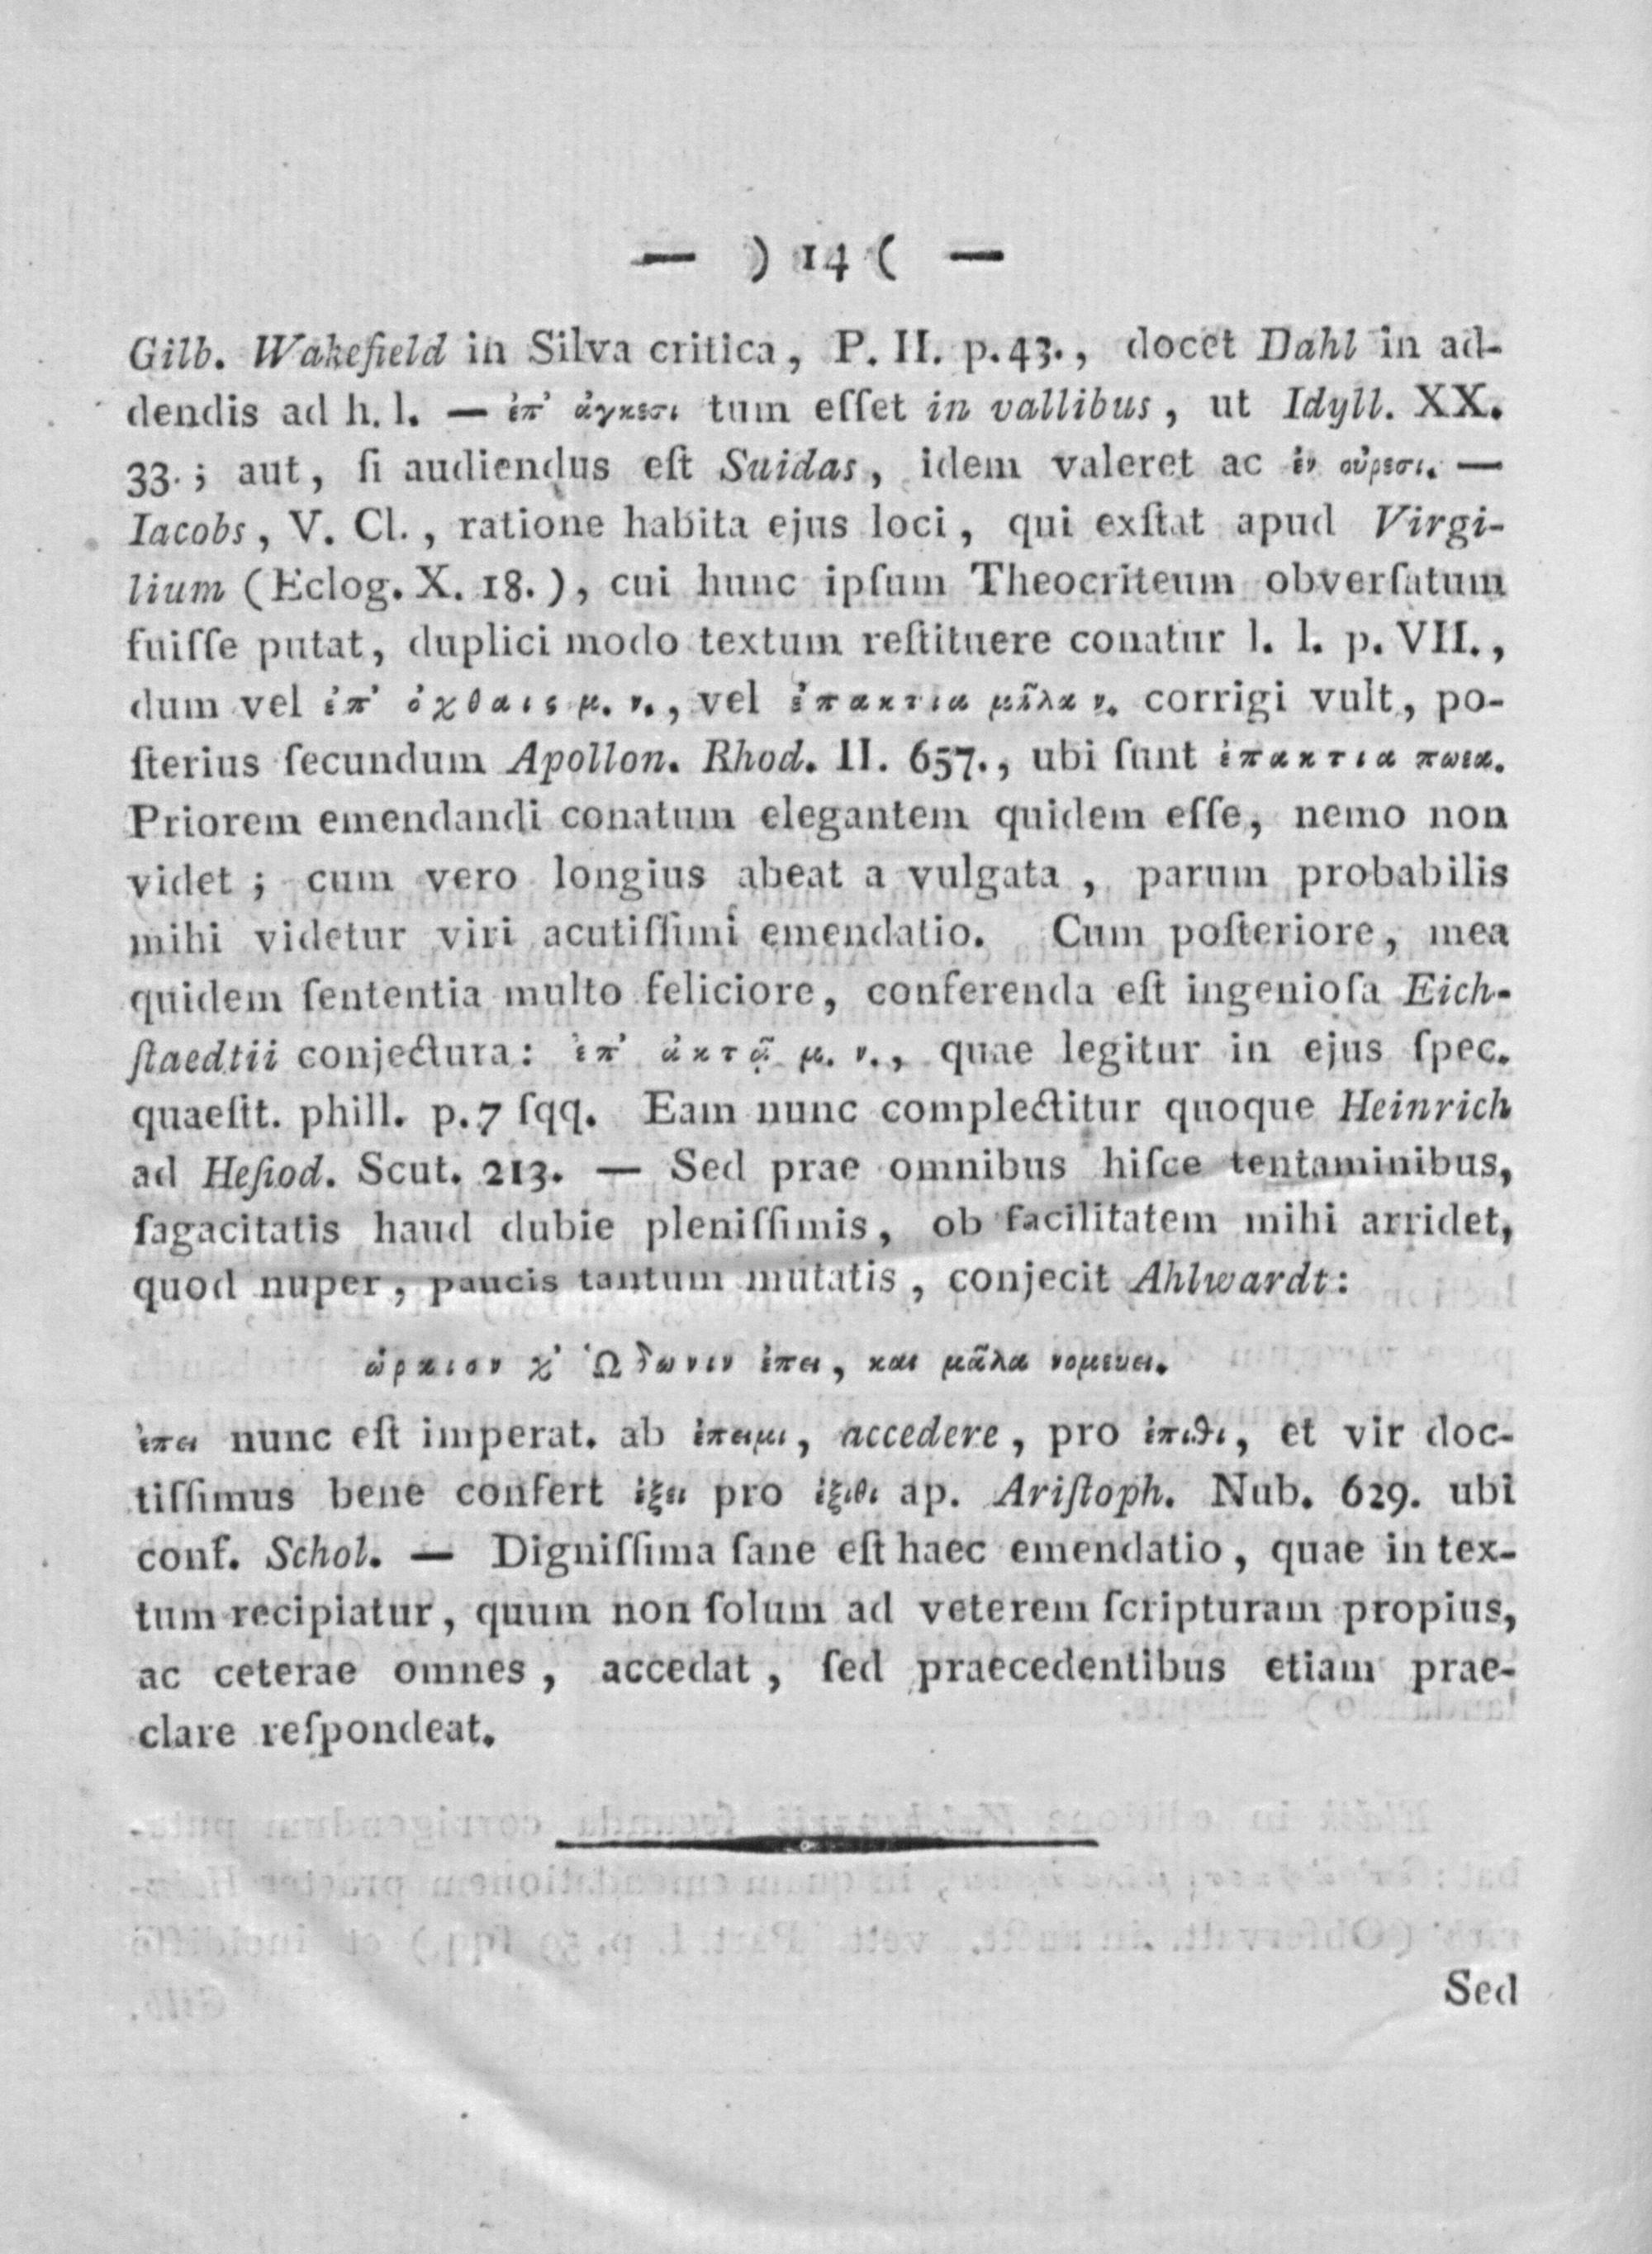 — ) 14 ( —
Gilb. Wakefield in Silva critica, P. II. p. 43., docet Dahl in ad-
dendis ad h. l. — ἐπ' ἀγκεσι tum eſſet in vallibus, ut Idyll. XX.
33.; aut, ſi audiendus eſt Suidas, idem valeret ac ἐν οὐρεσι. —
Iacobs, V. Cl., ratione habita ejus loci, qui exſtat apud Virgi-
lium (Eclog. X. 18.), cui hunc ipſum Theocriteum obverſatum
fuiſſe putat, duplici modo textum reſtituere conatur l. l. p. VII.,
dum vel ἐπ' ὀχθαις μ. ν., vel ἐπακτια μῆλα ν. corrigi vult, po-
ſterius ſecundum Apollon. Rhod. II. 657., ubi ſunt ἐπακτια πωεα.
Priorem emendandi conatum elegantem quidem eſſe, nemo non
videt; cum vero longius abeat a vulgata, parum probabilis
mihi videtur viri acutiſſimi emendatio. Cum poſteriore, mea
quidem ſententia multo feliciore, conferenda eſt ingenioſa Eich-
ſtaedtii conjectura: ἐπ' ἀκτᾷ μ. ν., quae legitur in ejus ſpec.
quaeſit. phill. p. 7 ſqq. Eam nunc complectitur quoque Heinrich
ad Heſiod. Scut. 213. — Sed prae omnibus hiſce tentaminibus,
ſagacitatis haud dubie pleniſſimis, ob facilitatem mihi arridet,
quod nuper, paucis tantum mutatis, conjecit Ahlwardt:
ὡρκισν χ' Ὡδωνιν ἐπει, και μᾶλα νομευει.
ἐπει nunc eſt imperat. ab ἐπειμι, accedere, pro ἐπιθι, et vir doc-
tiſſimus bene confert ἐξει pro ἐξιθι ap. Ariſtoph. Nub. 629. ubi
conf. Schol. — Digniſſima ſane eſt haec emendatio, quae in tex-
tum recipiatur, quum non ſolum ad veterem ſcripturam propius,
ac ceterae omnes, accedat, ſed praecedentibus etiam prae-
clare reſpondeat.
Sed